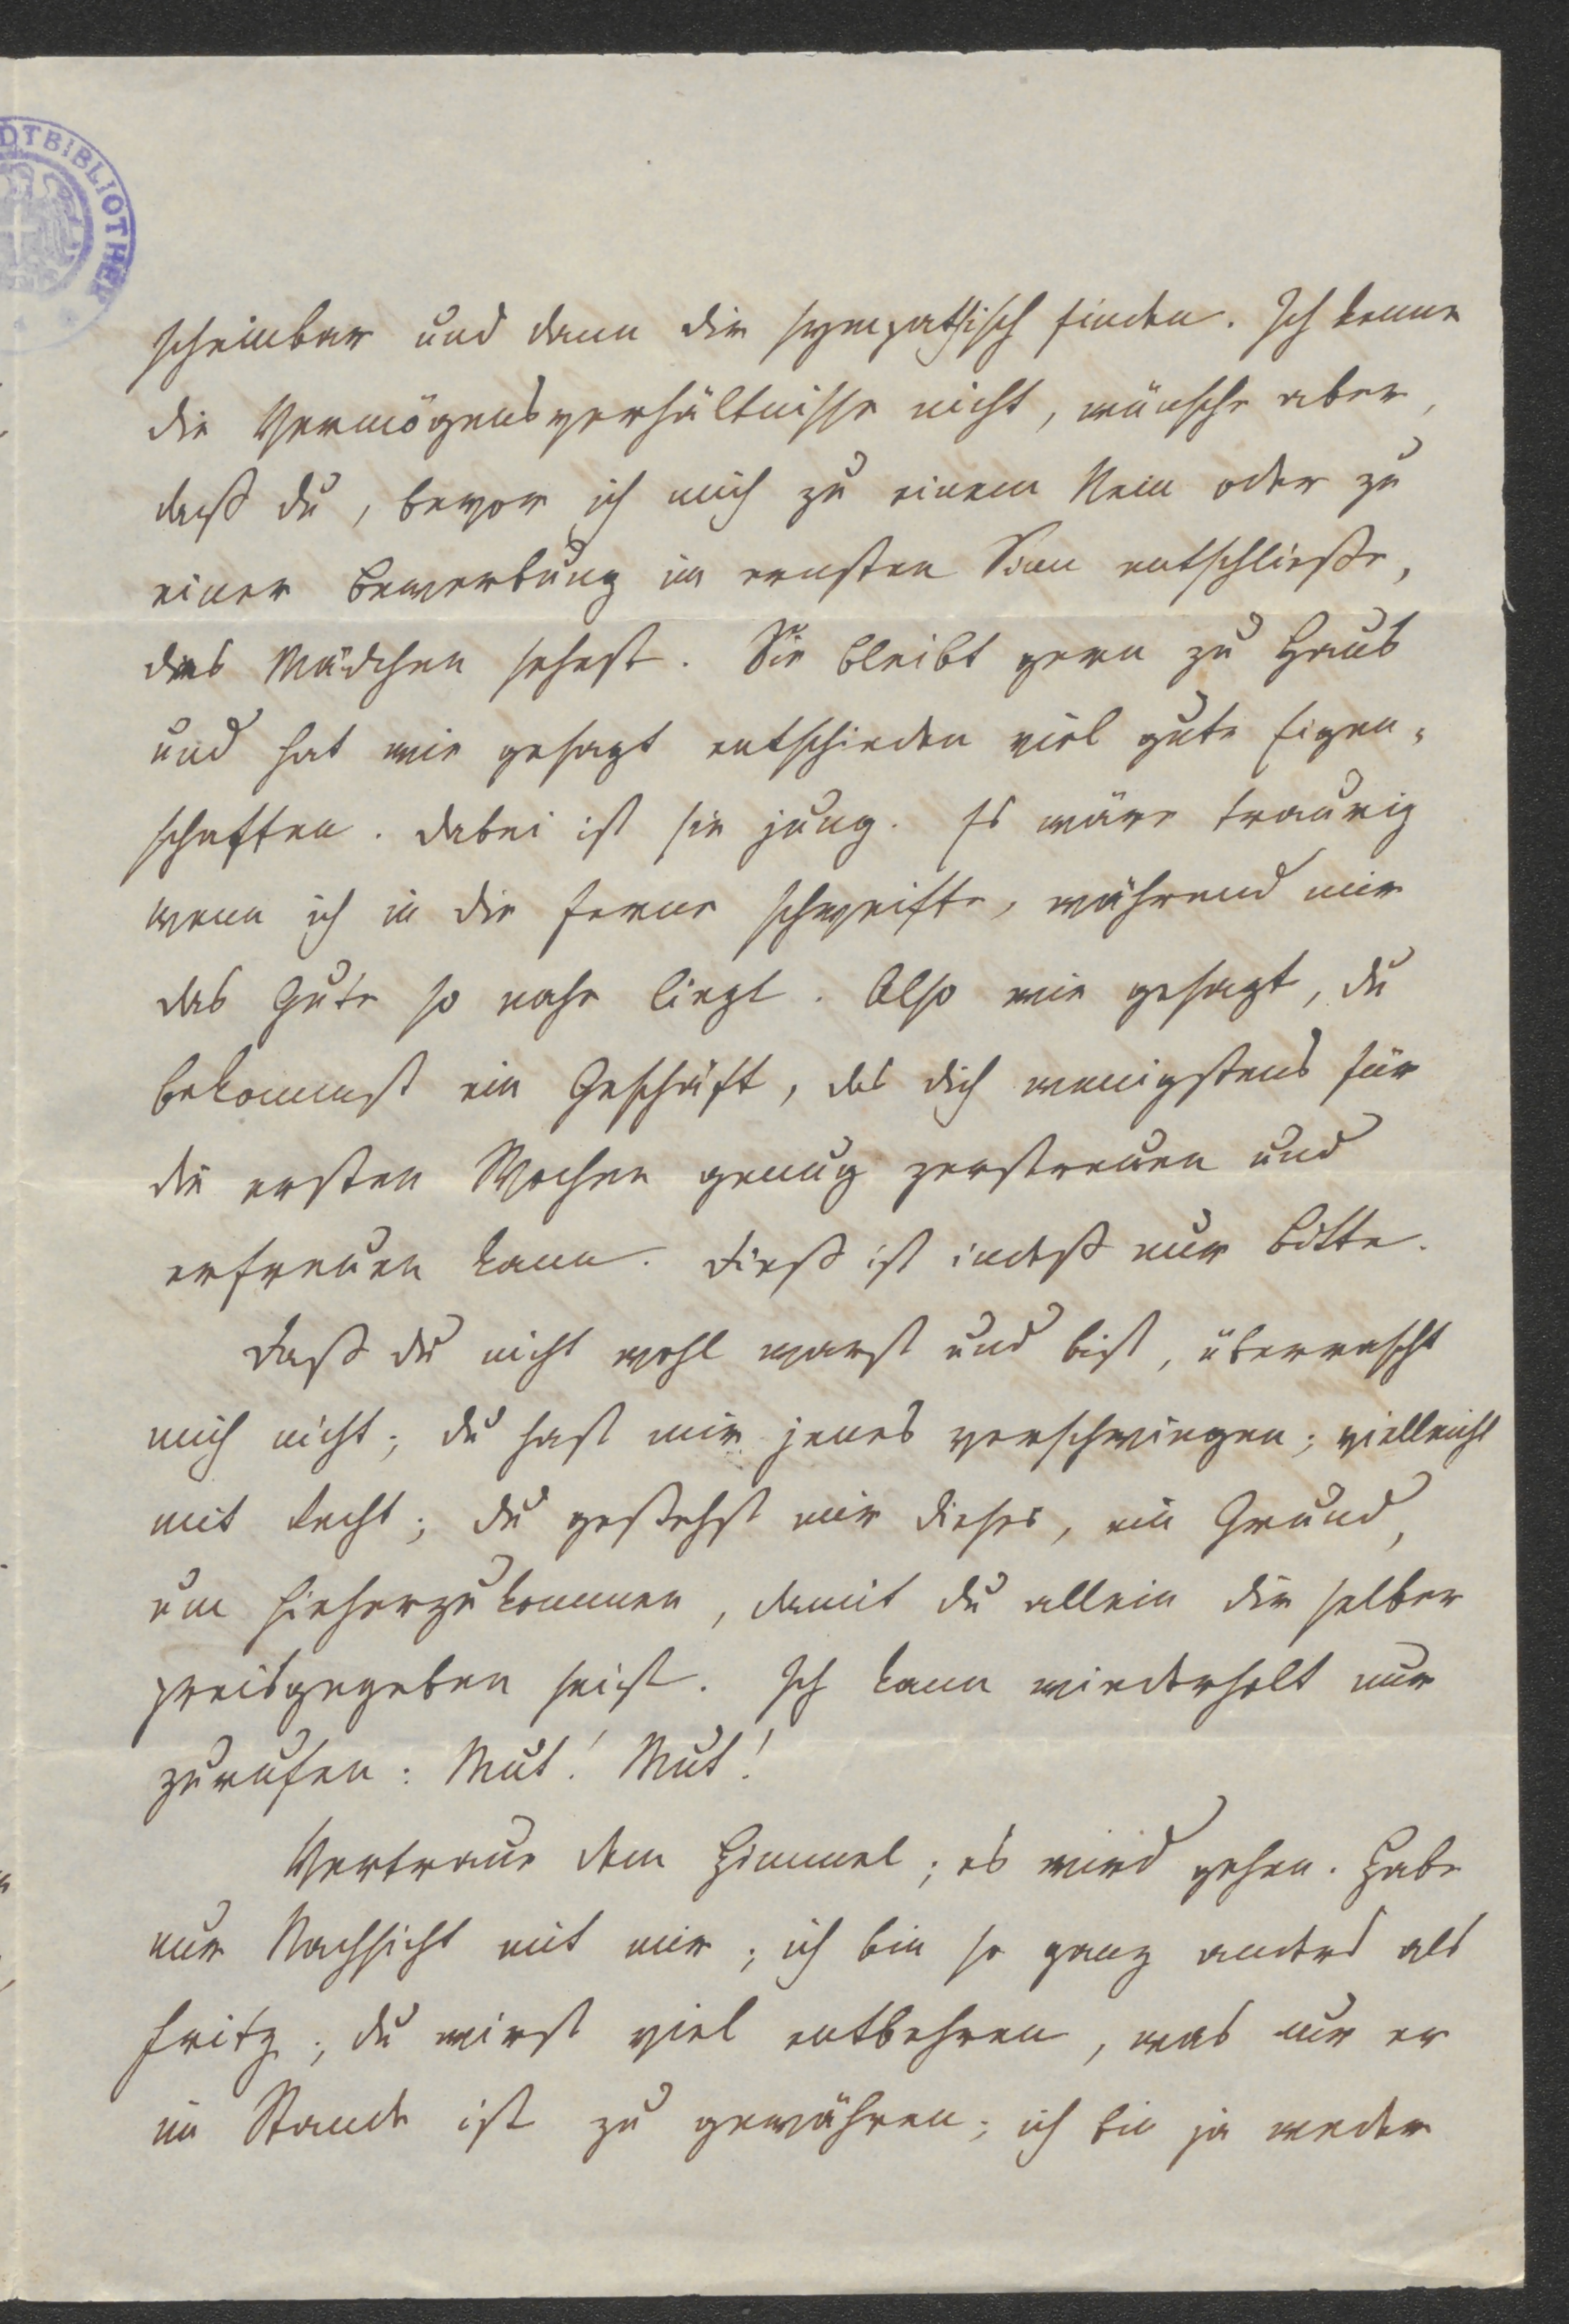 DTBIBLIOTHEK
scheinbar und dann dir sympathisch finden. Ich kenne
die Vermögensverhältnisse nicht, wünsche aber,
daß du, bevor ich mich zu einem Nein oder zu
einer Bewerbung im ernsten Sinn entschließe,
das Mädchen sehest. Sie bleibt gern zu Haus
und hat wie gesagt entschieden viel gute Eigen-
schaften. Dabei ist sie jung. Es wäre traurig
wenn ich in die Ferne schweifte, während mir
das Gute so nahe liegt. Also wie gesagt, du
bekommst ein Geschäft, das dich wenigstens für
die ersten Wochen genug zerstreuen und
erfreuen kann. Dieß ist indeß nur Bitte.
Daß du nicht wohl warst und bist, überrascht
mich nicht; du hast mir jenes verschwiegen; vielleicht
mit Recht; du gestehst mir dieses, ein Grund,
um hieherzukommen, damit du allein dir selber
preisgegeben seist. Ich kann wiederholt nur
zurufen: Mut! Mut!
Vertraue dem Himmel; es wird gehen. Habe
nur Nachsicht mit mir; ich bin so ganz anders als
Fritz; du wirst viel entbehren, was nur er
im Stande ist zu gewähren; ich bin ja weder